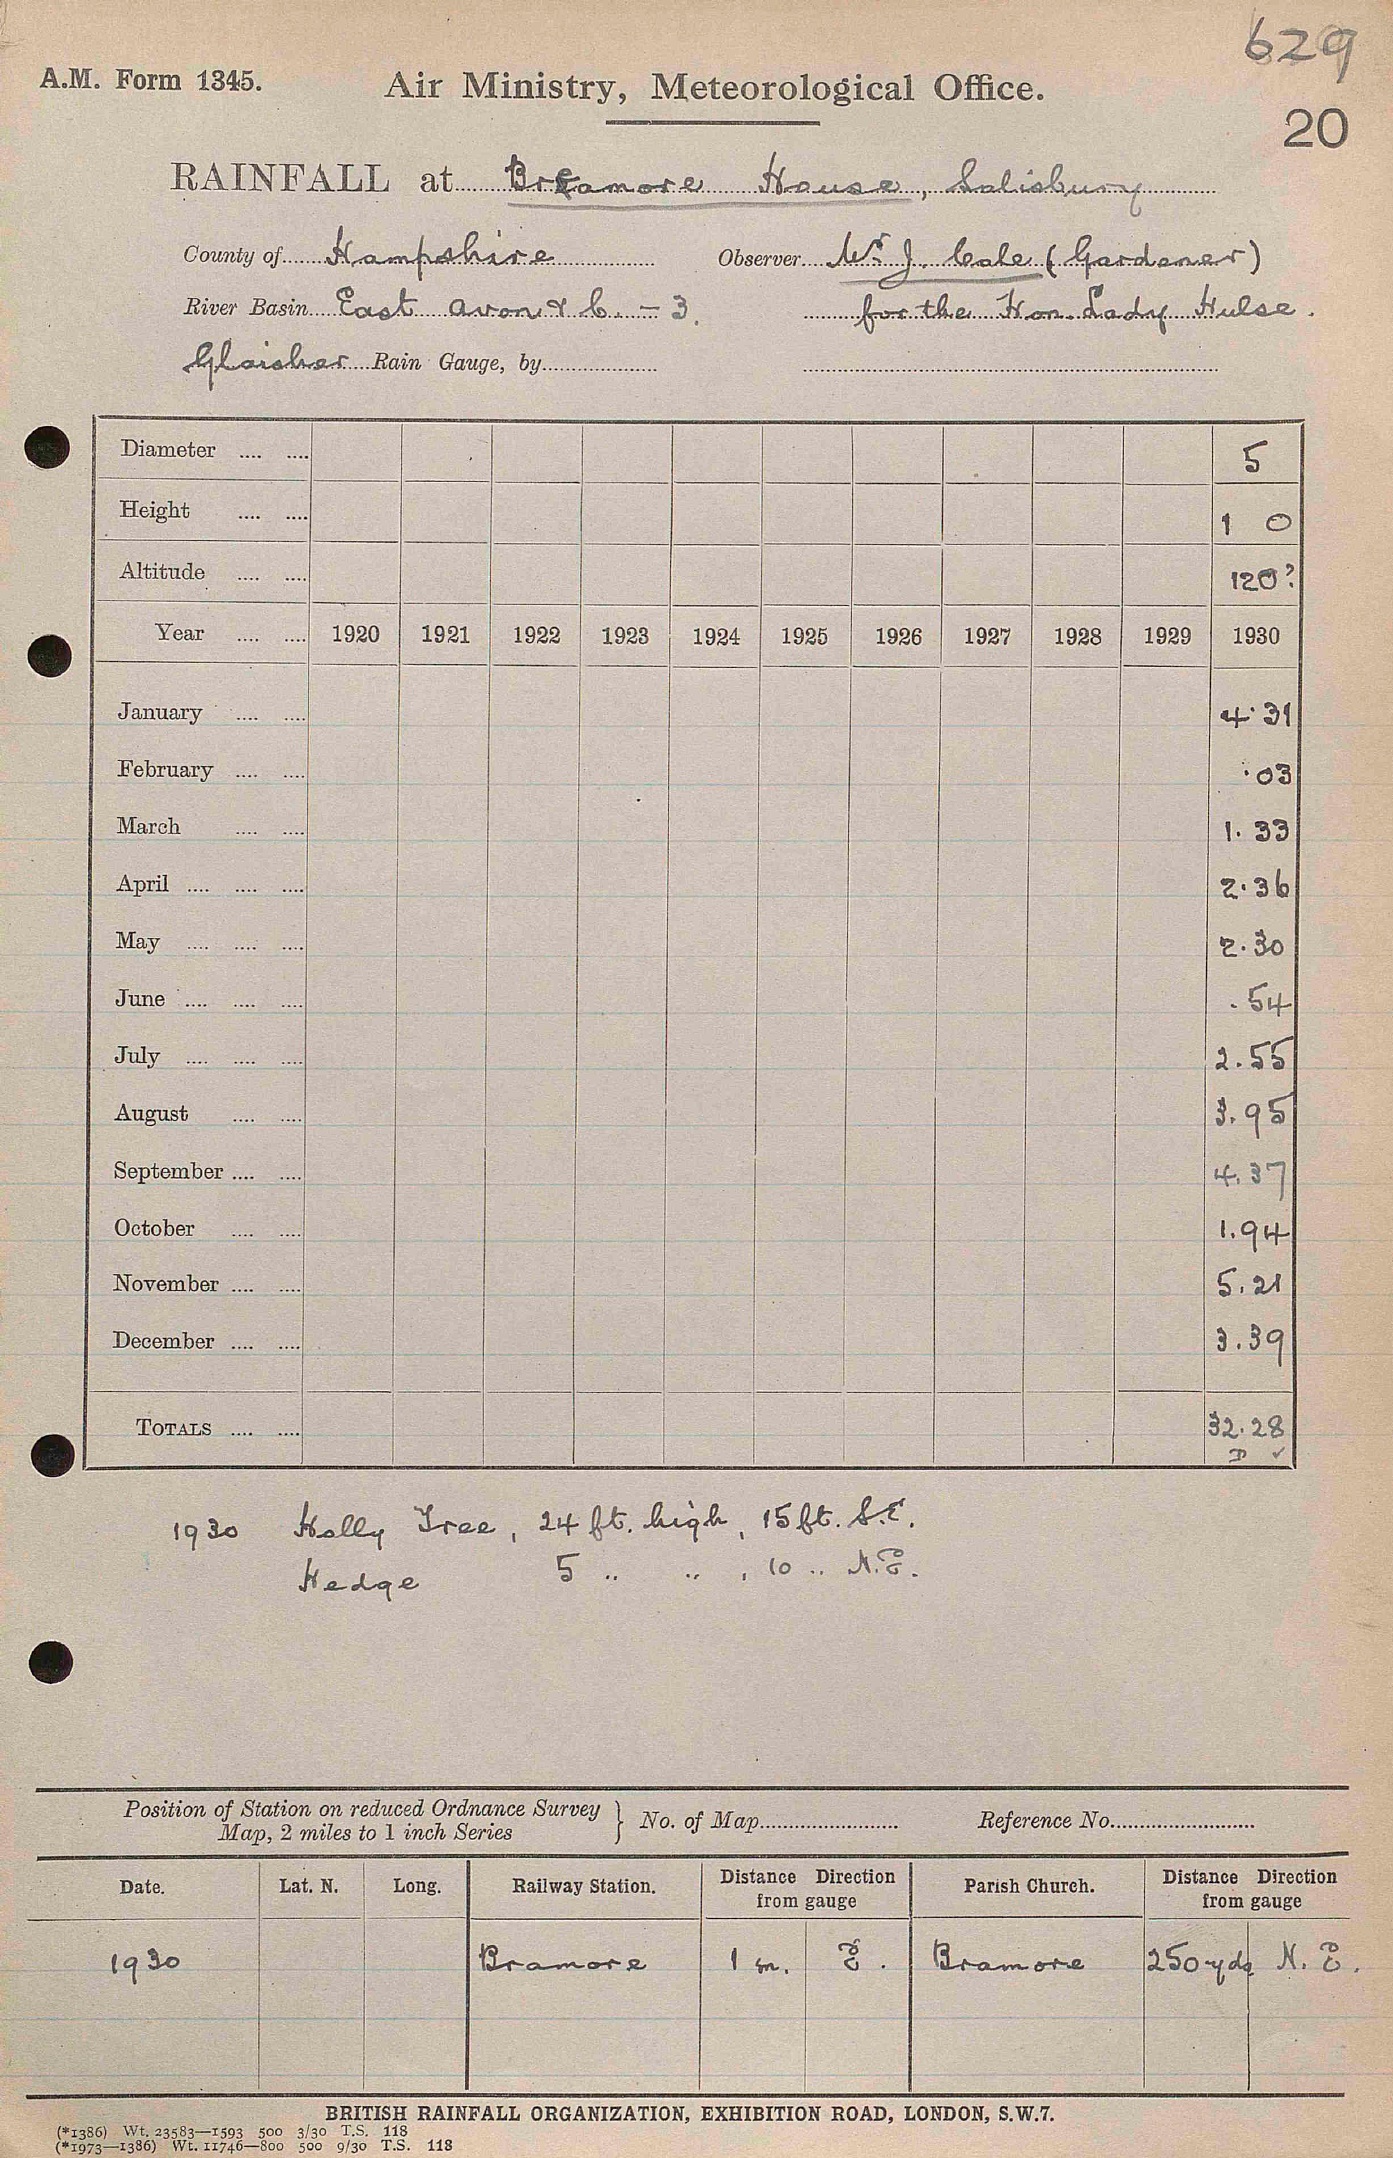 629
A.M. Form 1345. Air Ministry, Meteorological Office.
20
RAINFALL at Breamore House, Salisbury
County of Hampshire Observer Mr J. Cale (Gardener)
River Basin East Avon & C. - 3. for the Hon. Lady Hulse.
Glaisher Rain Gauge, by
Diameter .... .... 5
Height .... .... 1 0
Altitude .... .... 120?
Year .... .... 1920 1921 1922 1923 1924 1925 1926 1927 1928 1929 1930
January .... .... 4.31
February .... .... .03
March .... .... 1.33
April .... .... .... 2.36
May .... .... .... 2.30
June .... .... .... .54
July .... .... .... 2.55
August .... .... 3.95
September .... .... 4.37
October .... .... 1.94
November .... .... 5.21
December .... .... 3.39
TOTALS .... .... 32.28
D ✓
1930 Holly Tree, 24 ft. high, 15 ft. S.E.
Hedge 5 " " , 10 " N.E.
Position of Station on reduced Ordnance Survey
Map, 2 miles to 1 inch Series } No. of Map Reference No.
Date. Lat. N. Long. Railway Station. Distance Direction from gauge Parish Church. Distance Direction from gauge
1930 Bramore 1 m. E. Bramore 250 yds N.E.
BRITISH RAINFALL ORGANIZATION, EXHIBITION ROAD, LONDON, S.W.7.
(*1386) Wt. 23583—1593 500 3/30 T.S. 118
(*1973—1386) Wt. 11746—800 500 9/30 T.S. 118